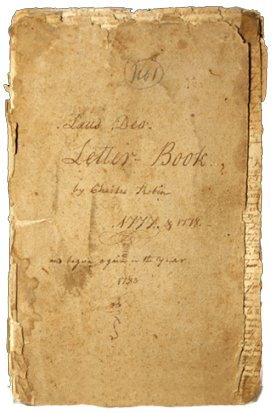 Laus Deo.
Letter-Book
by Charles Robin
1777. & 1778.
and begun again in the Year
1783